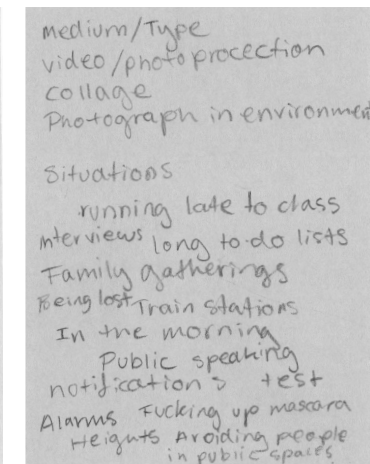 Medium/Type
video/photo procection
collage
Photograph in environment
Situations
running late to class
interviews long to-do lists
Family gatherings
Being lost Train Stations
In the morning
Public speaking
notifications test
Alarms Fucking up mascara
Heights Avoiding people
in public spaces